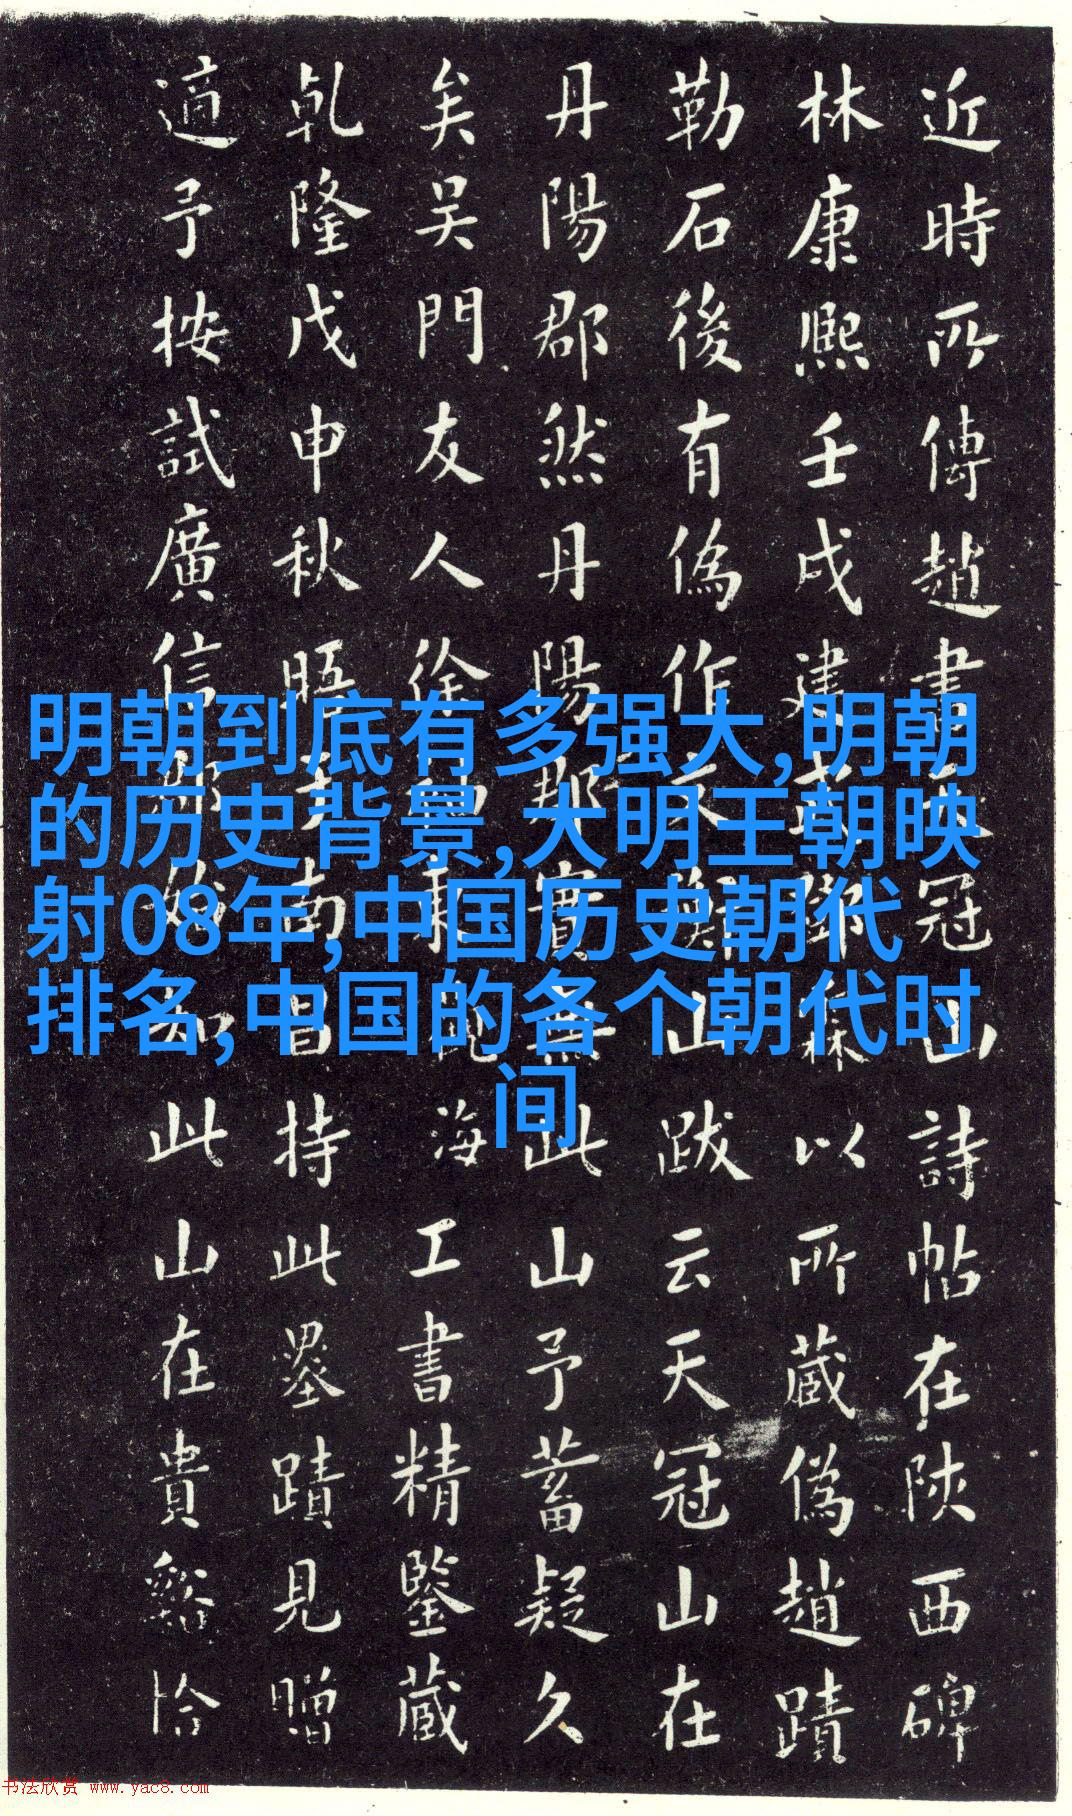 近時所傳趙書冠山詩帖在陝西碑
林康熙壬戌建以所藏偽趙蹟
勒石後有偽作山跋云天冠山在
丹陽郡然丹陽郡實無此山予蓄疑久
矣吳門友人徐海工書精鑒藏
乹隆戊申秋晤于南昌持此墨蹟見贈
適予按試廣信郡此山在貴谿恰
明朝到底有多强大,明朝
的历史背景,大明王朝映
射08年,中国历史朝代
排名,中国的各个朝代时
间
书法欣赏 www.yac8.com